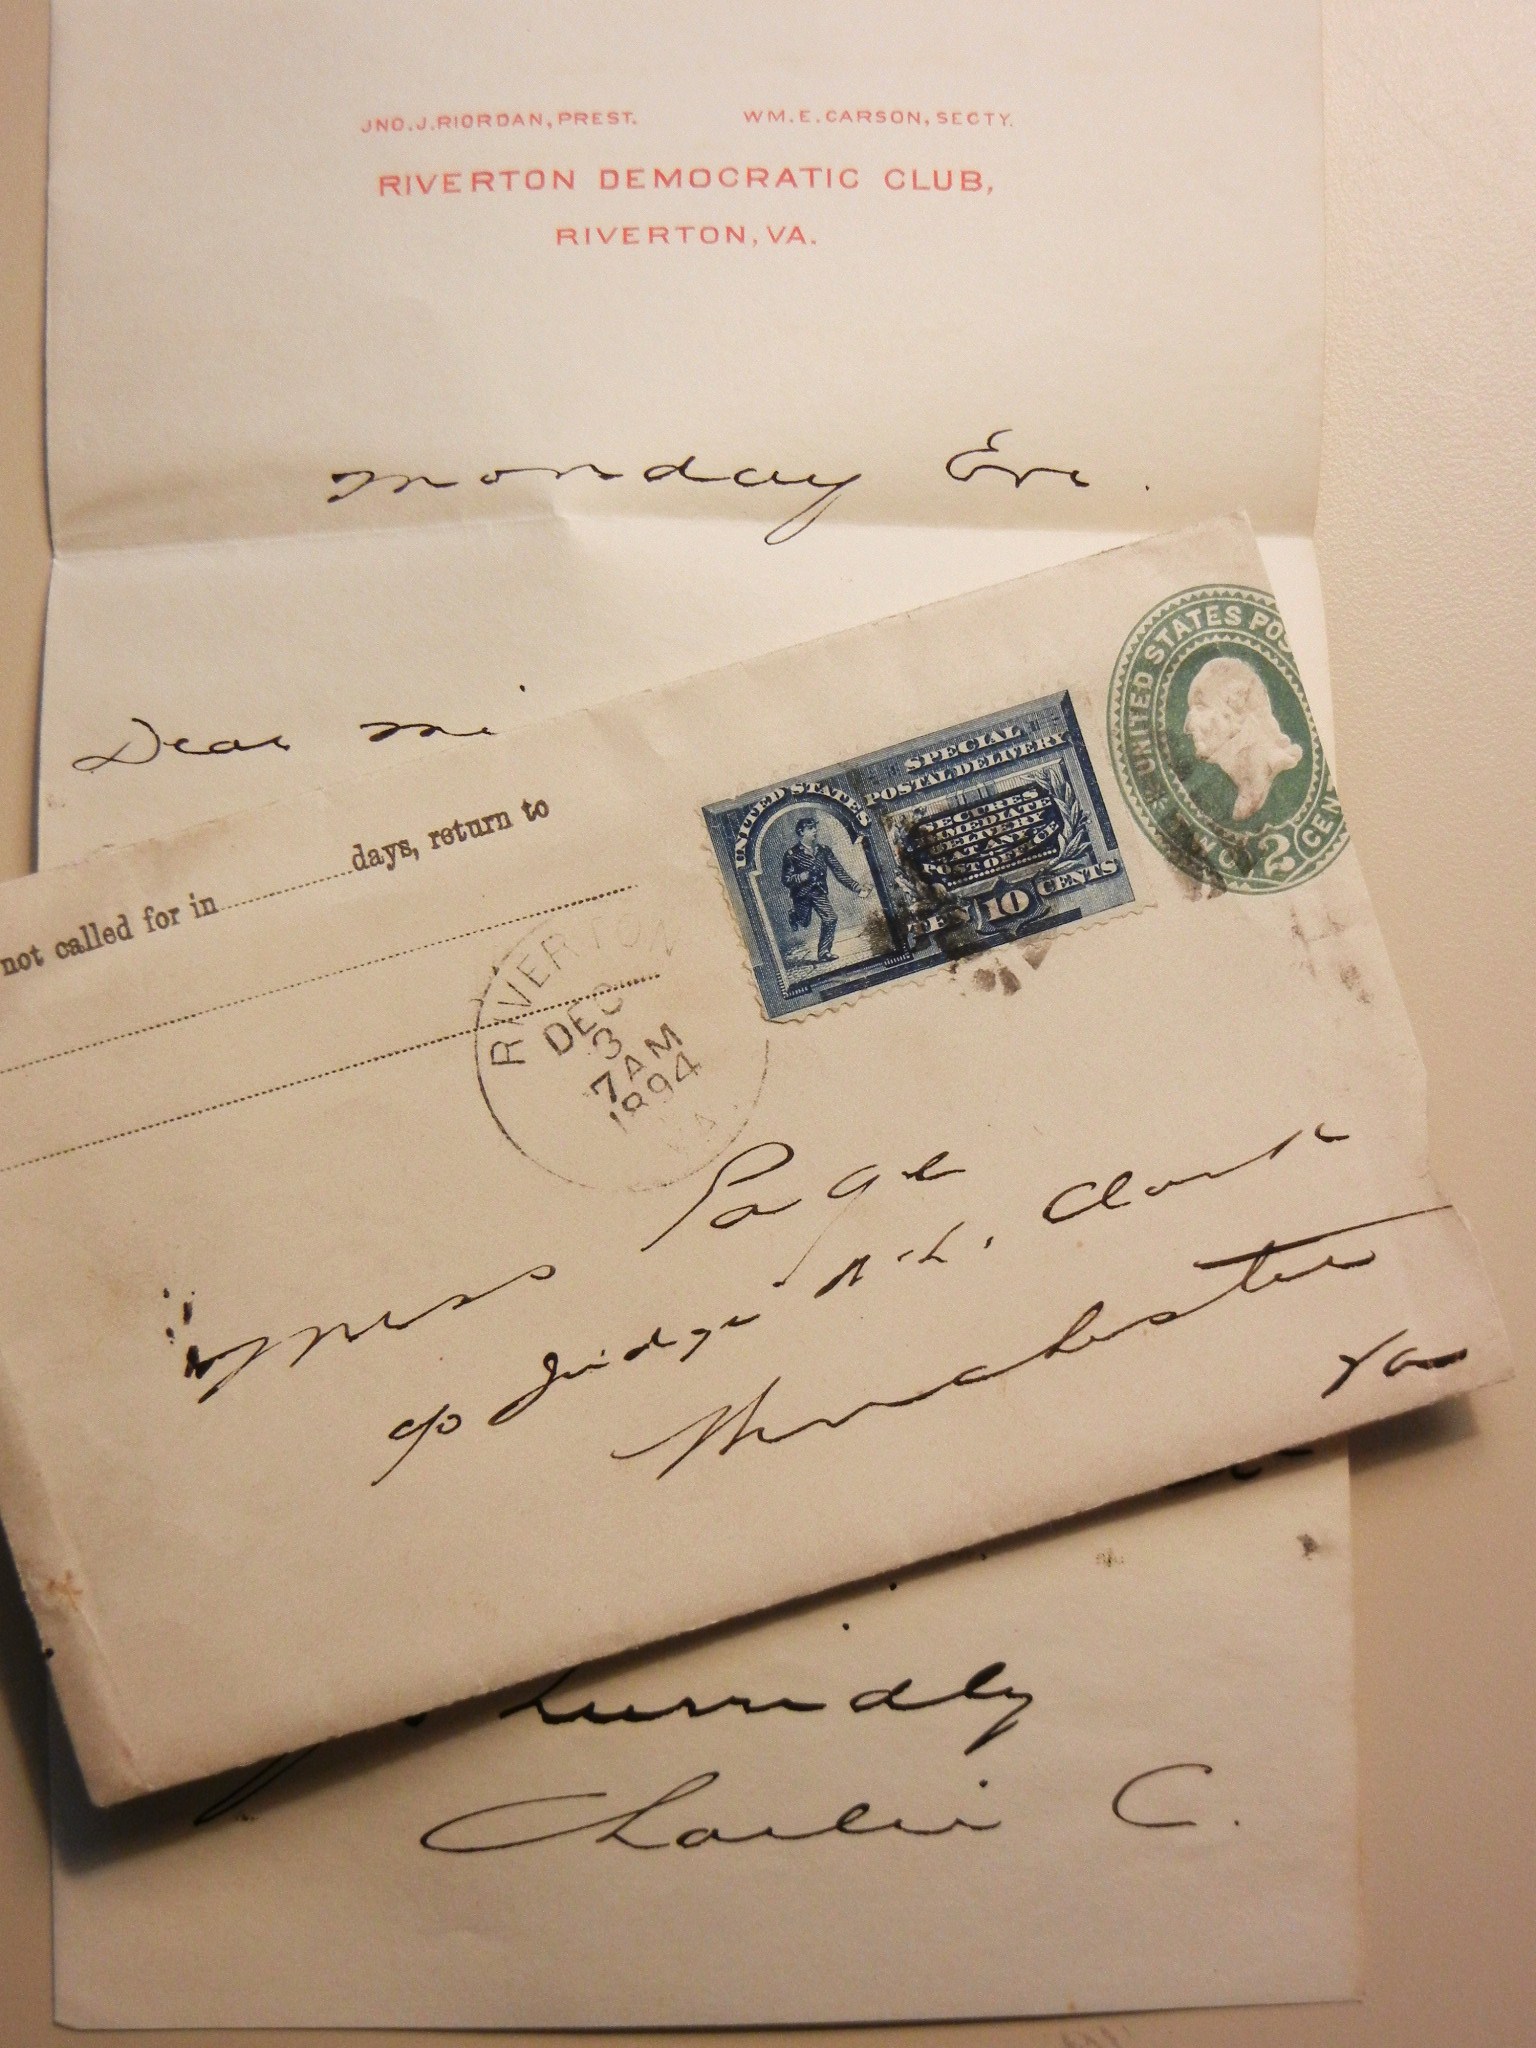 JNO. J. RIORDAN, PREST. WM. E. CARSON, SECTY.
RIVERTON DEMOCRATIC CLUB,
RIVERTON, VA.
Monday Eve.
Dear
not called for in days, return to
RIVERTON
DEC
3
7AM
1894
VA.
UNITED STATES
SPECIAL
POSTAL DELIVERY
SECURES
IMMEDIATE
DELIVERY
AT ANY
POST OFFICE
TEN 10 CENTS
UNITED STATES POS
TWO 2 CENT
Page
c/o Judge Clark
Winchester
Va
Charlie C.